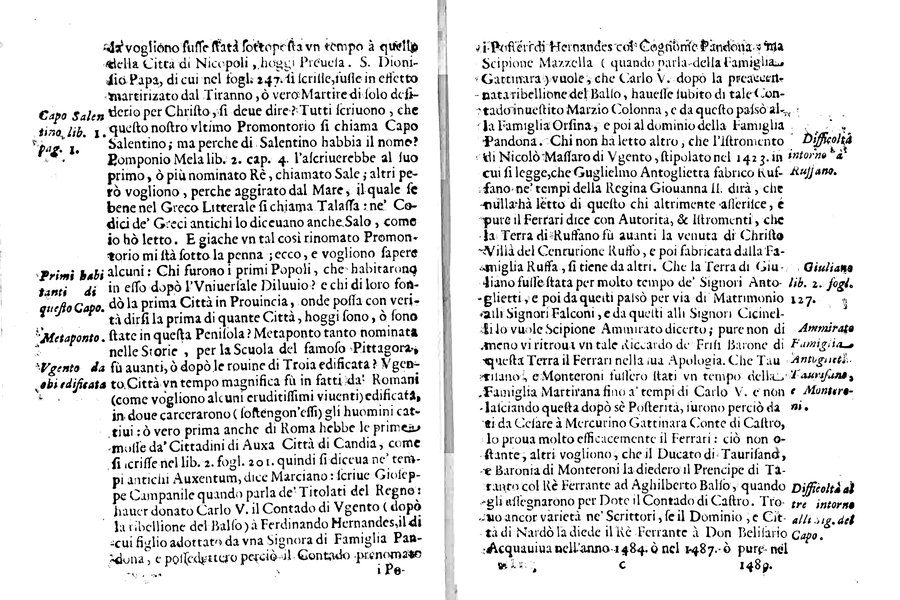 da vogliono fusse stata sottoposta vn tempo à quello
della Città di Nicopoli, hoggi Preuesa. S. Dioni-
sio Papa, di cui nel fogl. 247. si scrisse, fusse in effetto
martirizato dal Tiranno, ò vero Martire di solo desi-
derio per Christo, si deue dire? Tutti scriuono, che
questo nostro vltimo Promontorio si chiama Capo
Salentino; ma perche di Salentino habbia il nome?
Pomponio Mela lib. 2. cap. 4. l'ascriuerebbe al suo
primo, ò più nominato Rè, chiamato Sale; altri pe-
rò vogliono, perche aggirato dal Mare, il quale se
bene nel Greco Litterale si chiama Talassa: ne' Co-
dici de' Greci antichi lo diceuano anche Salo, come
io hò letto. E giache vn tal così rinomato Promon-
torio mi stà sotto la penna; ecco, e vogliono sapere
alcuni: Chi furono i primi Popoli, che habitarono
in esso dopò l'Vniuersale Diluuio? e chi di loro fon-
dò la prima Città in Prouincia, onde possa con veri-
tà dirsi la prima di quante Città, hoggi sono, ò sono
state in questa Penisola? Metaponto tanto nominata
nelle Storie, per la Scuola del famoso Pittagora,
fù auanti, ò dopò le rouine di Troia edificata? Vgen-
to Città vn tempo magnifica fù in fatti da' Romani
(come vogliono alcuni eruditissimi viuenti) edificata,
in doue carcerarono (sostengon'essi) gli huomini cat-
tiui: ò vero prima anche di Roma hebbe le prime
mosse da' Cittadini di Auxa Città di Candia, come
si scrisse nel lib. 2. fogl. 201. quindi si diceua ne' tem-
pi antichi Auxentum, dice Marciano: scriue Giosep-
pe Campanile quando parla de' Titolati del Regno:
hauer donato Carlo V. il Contado di Vgento (dopò
la ribellione del Balso) à Ferdinando Hernandes, il di
cui figlio adottato da vna Signora di Famiglia Pan-
dona, e possedettero perciò il Contado prenomato
i Po-
Capo Salen
tino, lib. 1.
pag. 1.
Primi habi
tanti di
questo Capo.
Metaponto.
Vgento da
chi edificata
i Posteri di Hernandes col Cognome Pandona: ma
Scipione Mazzella (quando parla della Famiglia
Gattinara) vuole, che Carlo V. dopò la preaccen-
nata ribellione del Balso, hauesse subito di tale Con-
tado inuestito Marzio Colonna, e da questo passò al-
la Famiglia Orsina, e poi al dominio della Famiglia
Pandona. Chi non ha letto altro, che l'Istromento
di Nicolò Massaro di Vgento, stipolato nel 1423. in
cui si legge, che Guglielmo Antoglietta fabricò Ruf-
fano ne' tempi della Regina Giouanna II. dirà, che
nulla hà letto di questo chi altrimente asserisce, e
pure il Ferrari dice con Autorità, & Istromenti, che
la Terra di Ruffano fù auanti la venuta di Christo
Villa del Centurione Ruffo, e poi fabricata dalla Fa-
miglia Ruffa, si tiene da altri. Che la Terra di Giu-
liano fusse stata per molto tempo de' Signori Anto-
glietti, e poi da questi passò per via di Matrimonio
alli Signori Falconi, e da questi alli Signori Cicinel-
li lo vuole Scipione Ammirato dicerto; pure non di
meno vi ritroua vn tale Riccardo de Frisi Barone di
questa Terra il Ferrari nella sua Apologia. Che Tau
risano, e Monteroni fussero stati vn tempo della
Famiglia Martirana fino a' tempi di Carlo V. e non
lasciando questa dopò sè Posterità, furono perciò da
ti da Cesare à Mercurino Gattinara Conte di Castro,
lo proua molto efficacemente il Ferrari: ciò non o-
stante, altri vogliono, che il Ducato di Taurisano,
e Baronia di Monteroni la diedero il Prencipe di Ta-
ranto col Rè Ferrante ad Aghilberto Balso, quando
gli assegnarono per Dote il Contado di Castro. Tro-
uo ancor varietà ne' Scrittori, se il Dominio, e Cit-
tà di Nardò la diede il Rè Ferrante à Don Belisario
Acquauiua nell'anno 1484. ò nel 1487. ò pure nel
C 1489.
Difficoltà
intorno à
Ruffano.
Giuliano
lib. 2. fogl.
127.
Ammirato
Famiglia
Antogliett.
Taurisano,
e Montero-
ni.
Difficoltà al
tre intorno
alli Sig. del
Capo.